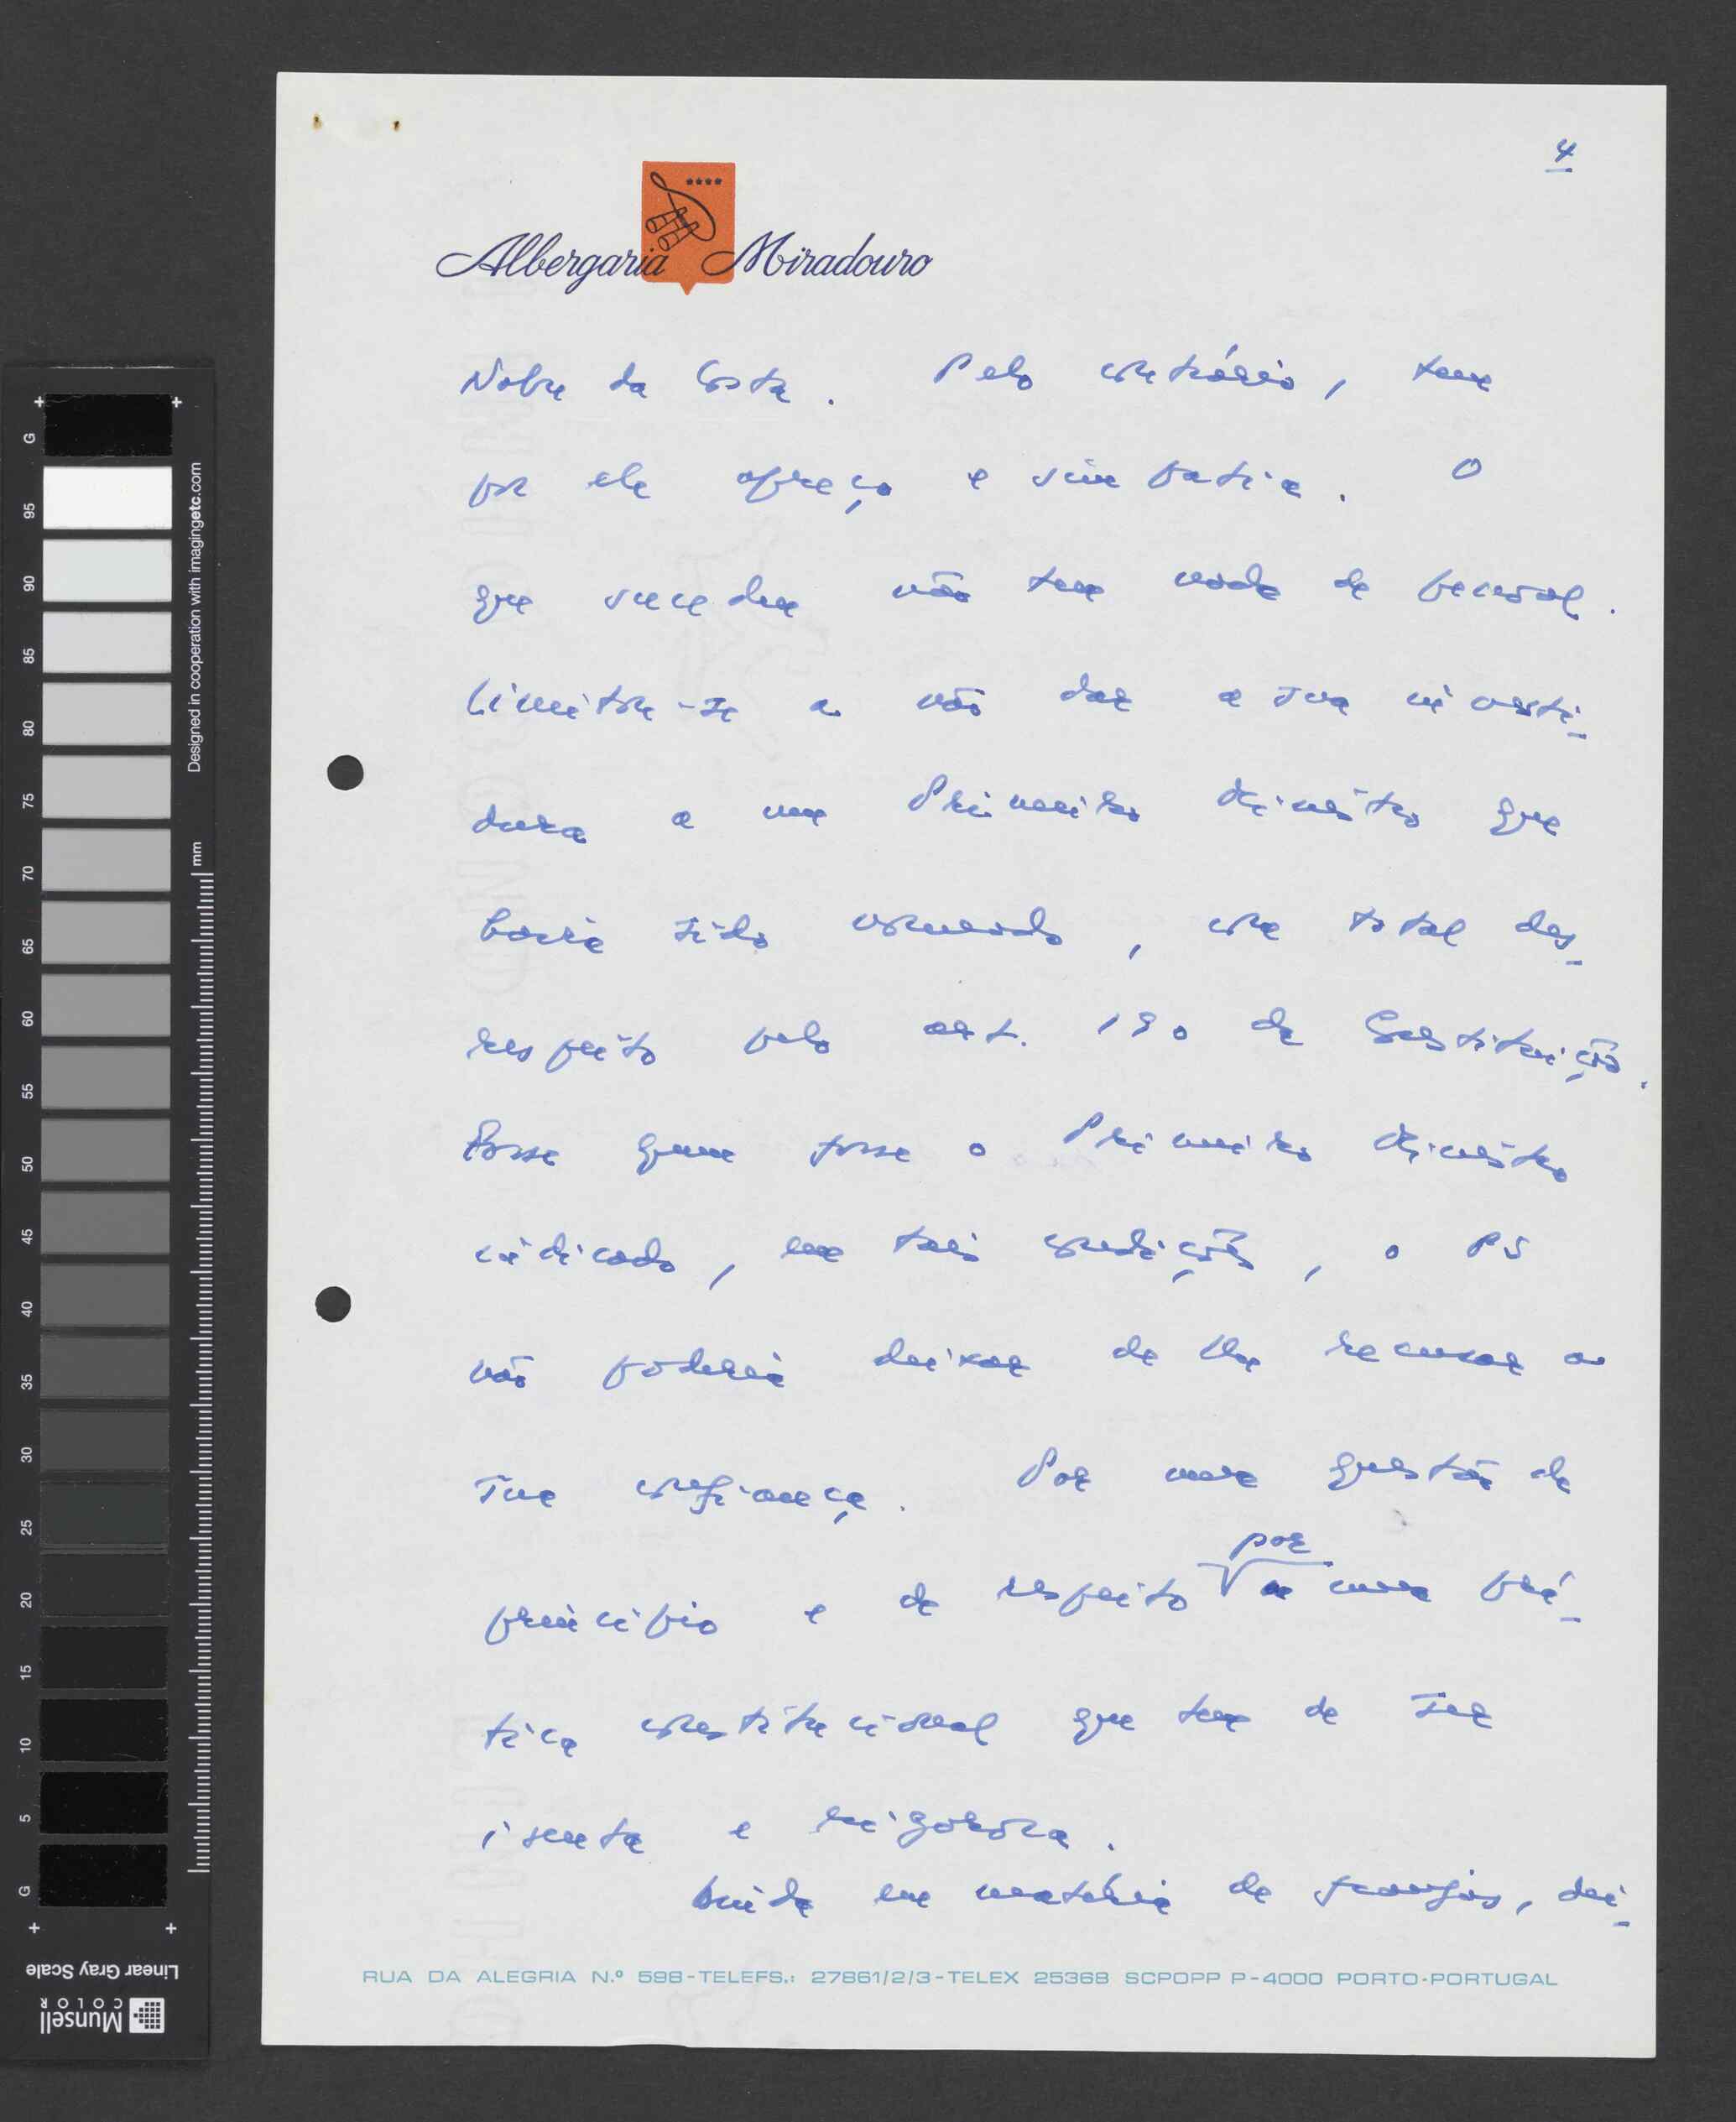 4
Albergaria Miradouro
Nobre da Costa. Pelo contrário, tem
por ele apreço e simpatia. O
que sucedeu não tem nada de pessoal.
Limitou-se a não dar a sua investi-
dura a um Primeiro Ministro que
havia sido nomeado, com total des-
respeito pelo art. 190 da Constituição.
Fosse quem fosse o Primeiro Ministro
indicado, em tais condições, o PS
não poderia deixar de lhe recusar a
sua confiança. Por uma questão de
por
princípio e de respeito uma prá-
tica constitucional que tem de ser
isenta e rigorosa.
Ainda em matéria de , dei-
RUA DA ALEGRIA N.º 598-TELEFS.: 27861/2/3-TELEX 25368 SCPOPP P-4000 PORTO-PORTUGAL
G 95 90 85 80 75 70 65 60 55 50 45 40 35 30 25 20 15 10 5 G
Designed in cooperation with imagingetc.com
mm
Linear Gray Scale
Munsell
COLOR